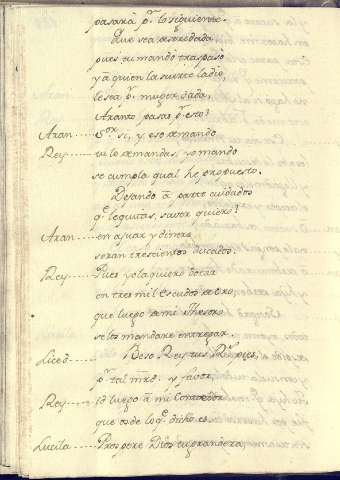 pasará pr. lo siguiente.
Que sea desheredada
pues tu mando traspasó
y á quien la suerte la dio
le sea pr. muger dada,
Aranto, pasas pr. esto?
Aran... Sor. si, y eso demando
Rey... tu lo demandas, yo mando
se cumpla qual he propuesto.
Dejando á parte cuidados
qe. le quitas, saver quiero?
Aran... en ajuar y dinero
seran trescientos ducados.
Rey... Pues yo la quiero dotar
en tres mil escudos de oro,
que luego de mi thesoro
se los mandaré entregar.
Liced... Beso Rey tus Rs. pies,
pr. tal mrd. y favor,
Rey... Id luego á mi Contador
que os dé lo qe. dicho es.
Lucila... Prospere Dios tu grandeza,